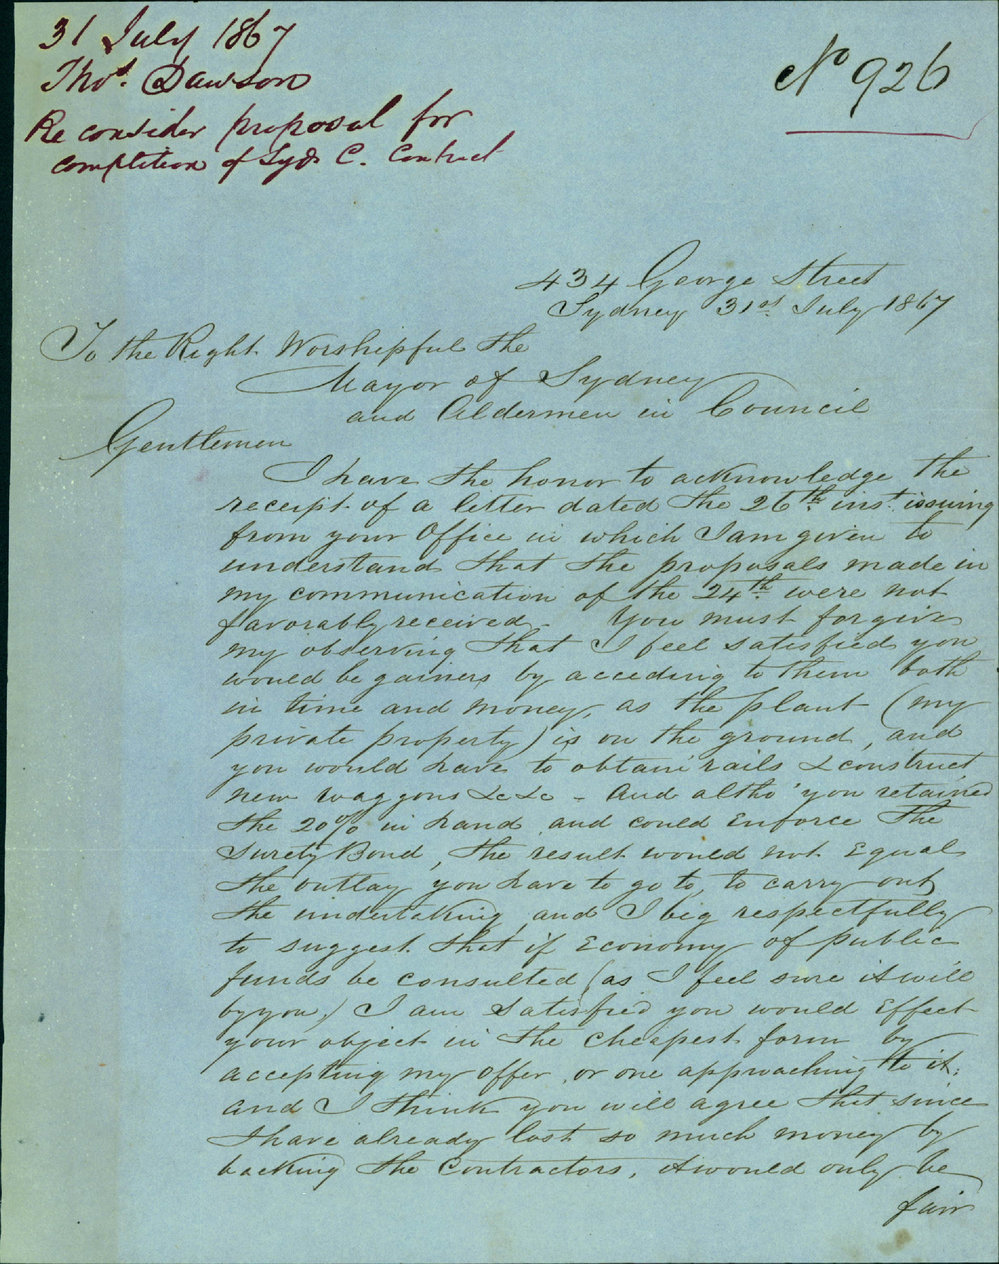 31 July 1867
Thos. Dawson
Re consider proposal for
completion of Syds C. Contract
No 926
434 George Street
Sydney 31st July 1867
To the Right Worshipful the
Mayor of Sydney
and Aldermen in Council
Gentlemen
I have the honor to acknowledge the
receipt of a letter dated the 26th inst. issuing
from your Office in which I am given to
understand that the proposals made in
my communication of the 24th were not
favorably received. You must forgive
my observing that I feel satisfied you
would be gainers by acceding to them both
in time and money, as the plant (my
private property) is on the ground, and
you would have to obtain rails & construct
new waggons &c &c - And altho' you retained
the 20% in hand, and could Enforce the
Surety Bond, the result would not Equal
the outlay you have to go to, to carry out
the undertaking, and I beg respectfully
to suggest that if Economy of public
funds be consulted (as I feel sure it will
by you,) I am satisfied you would Effect
your object in the cheapest form by
accepting my offer, or one approaching to it;
and I think you will agree that since
I have already lost so much money by
backing the Contractors, it would only be
fair